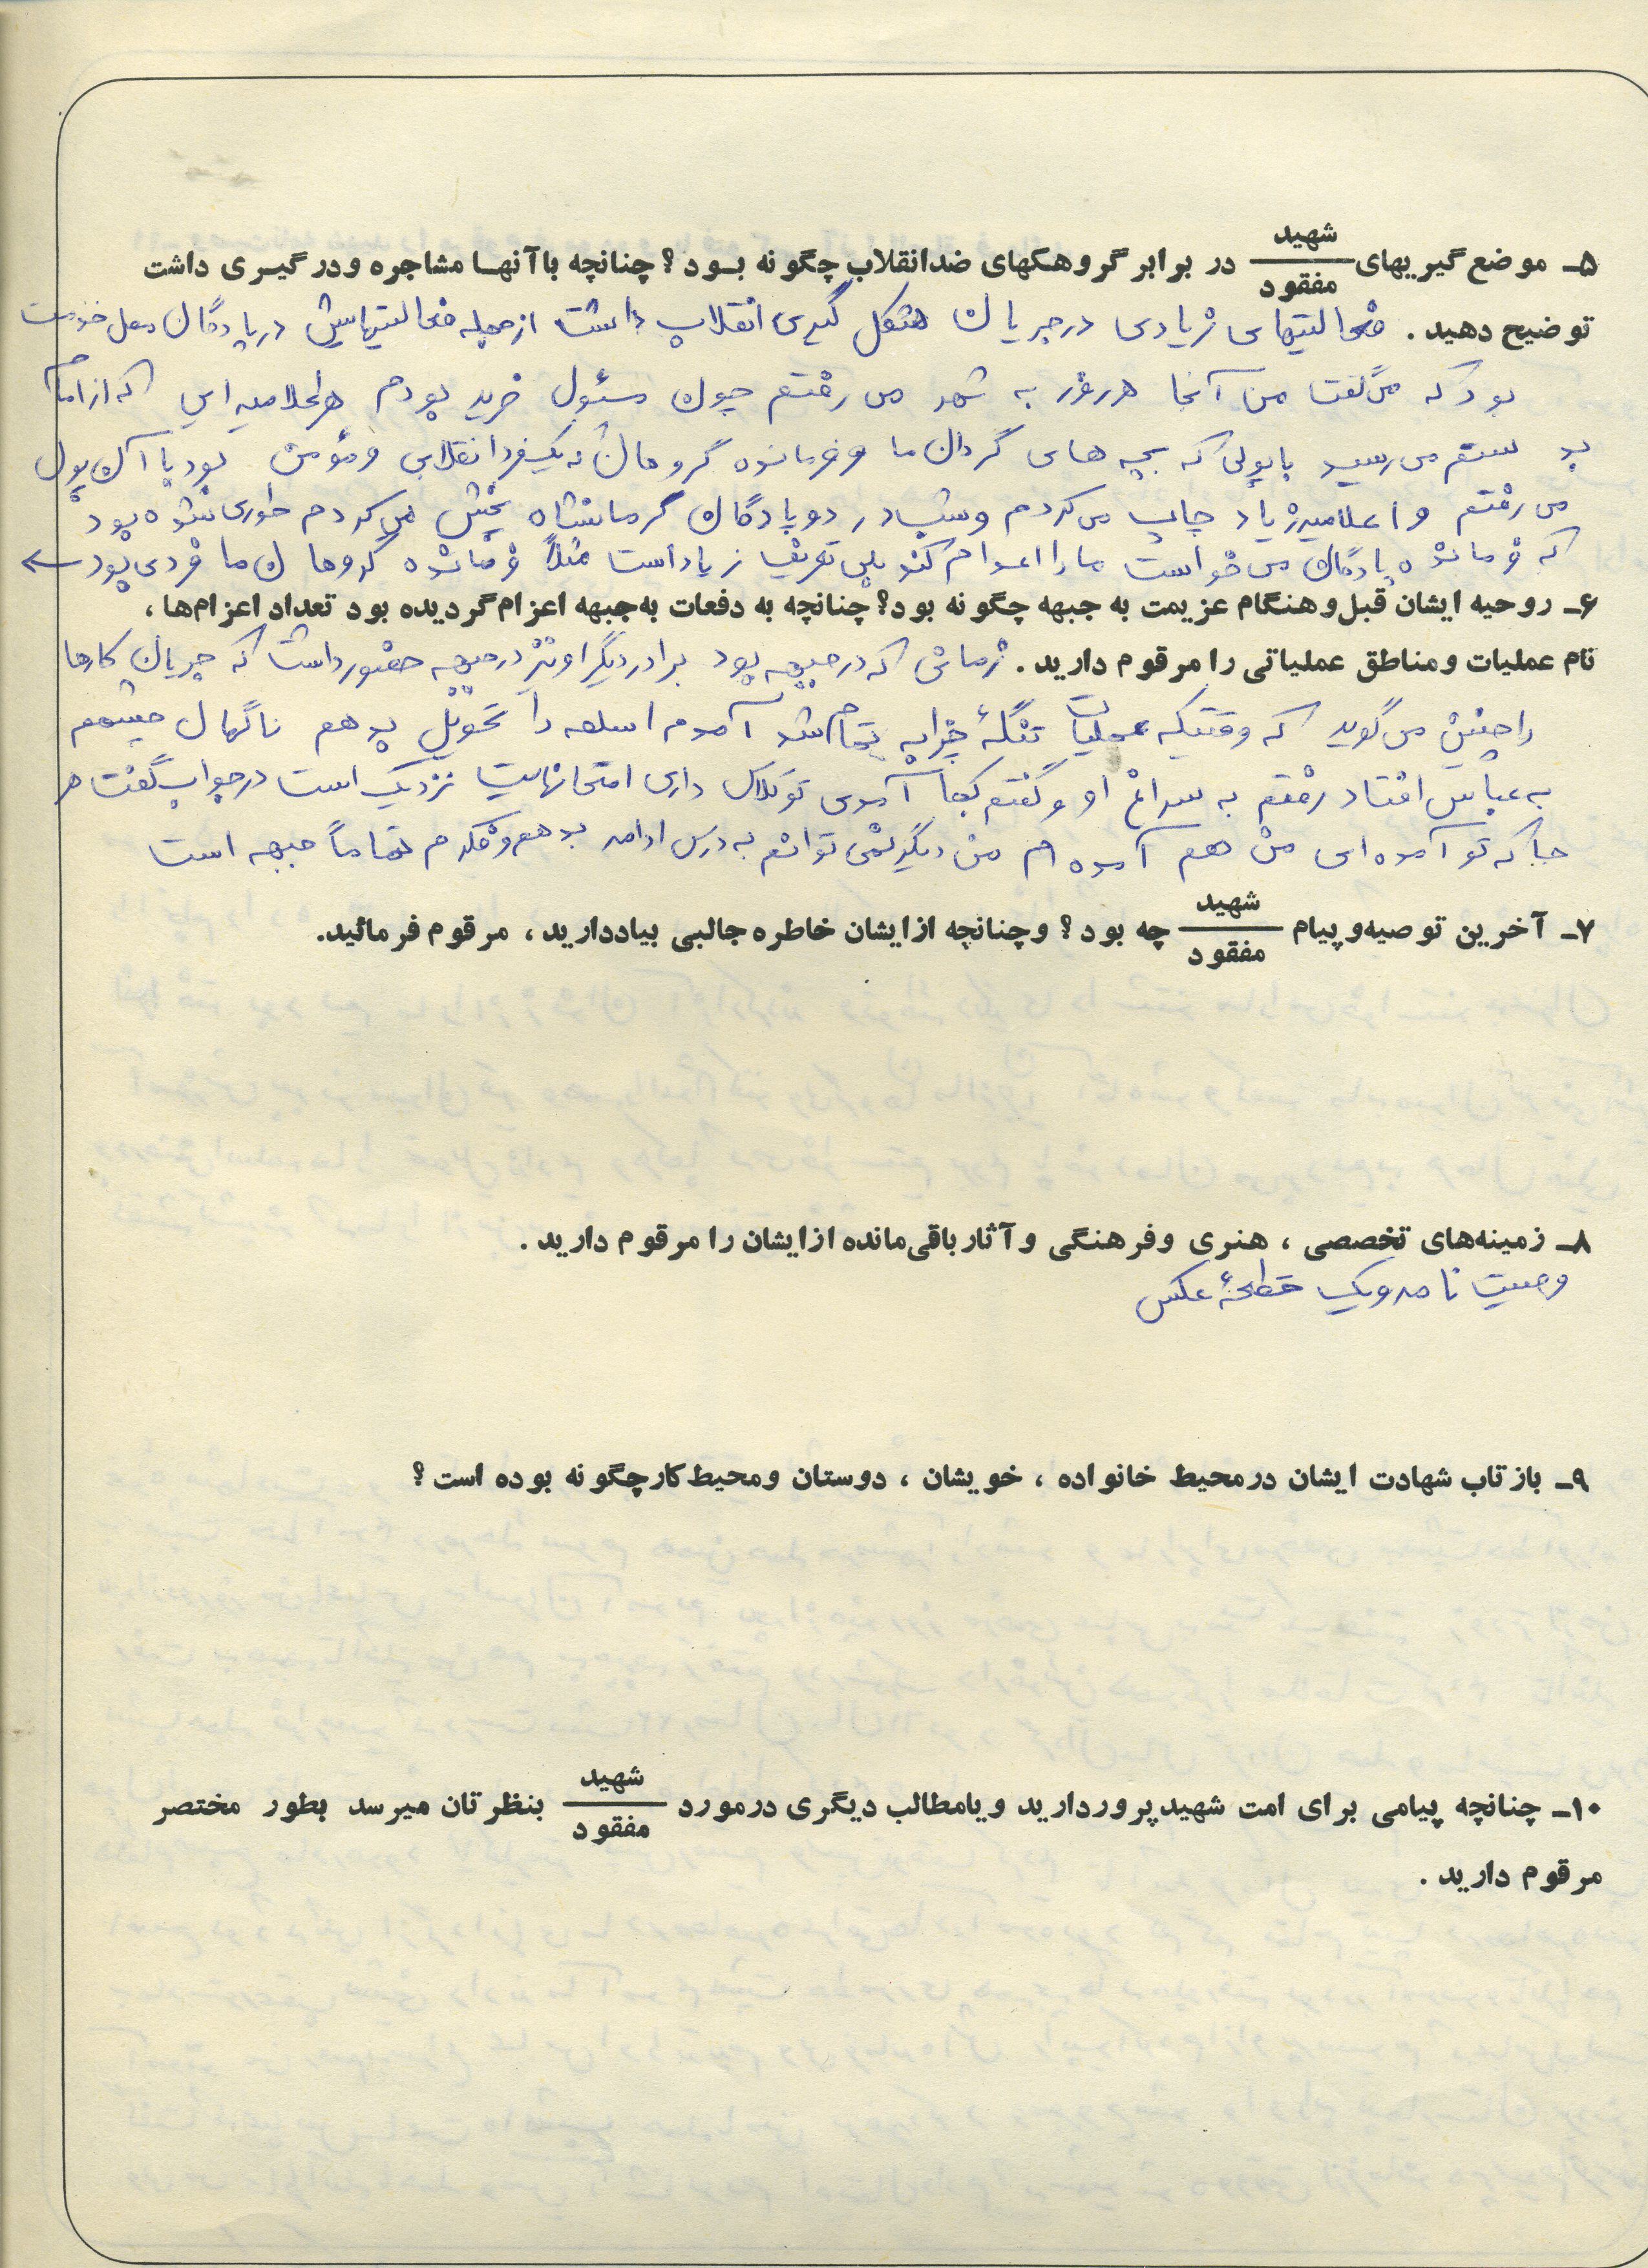 ۵ـ موضع‌گیریهای شهید/مفقود در برابر گروهکهای ضدانقلاب چگونه بود؟ چنانچه باآنها مشاجره ودرگیری داشت
توضیح دهید. فعالیتهای زیادی در جریان شکل گیری انقلاب داشت از جمله فعالیتهایش در پادگان محل خدمت
بود که می‌گفت من آنجا هر روز به شهر می رفتم چون مسئول خرید بودم هر اعلامیه ایی که از امام
بدستم می رسید با پولی که بچه های گردان ما و فرمانده گروهان که یک فرد انقلابی و مؤمن بود با آن پول
می رفتم و اعلامیه زیاد چاپ می کردم و شب در دو پادگان کرمانشاه پخش می کردم طوری شده بود
که فرمانده پادگان می خواست ما را اعدام کند تعریف زیاد است مثلاً فرمانده گروهان ما فردی بود ←
۶ـ روحیه ایشان قبل‌وهنگام عزیمت به جبهه چگونه بود؟ چنانچه به دفعات به‌جبهه اعزام‌گردیده بود تعداد اعزام‌ها،
نام عملیات ومناطق عملیاتی را مرقوم دارید. زمانی که در جبهه بود برادر دیگر او نیز در جبهه حضور داشت که جریان کارها
را چنین می گوید که وقتیکه عملیات تنگهٔ چزابه تمام شد آمدم اسلحه را تحویل بدهم ناگهان چشمم
به عباس افتاد رفتم به سراغ او و گفتم کجا آمدی تو کلاس داری امتحانهایت نزدیک است در جواب گفت هر
جا که تو آمده ای من هم آمده ام من دیگر نمی توانم به درس ادامه بدهم و فکرم تماماً جبهه است
۷ـ آخرین توصیه‌وپیام شهید/مفقود چه بود؟ وچنانچه ازایشان خاطره جالبی بیاددارید، مرقوم فرمائید.
۸ـ زمینه‌های تخصصی، هنری وفرهنگی وآثار باقی‌مانده ازایشان را مرقوم دارید.
وصیت نامه و یک قطعهٔ عکس
۹ـ بازتاب شهادت ایشان درمحیط خانواده، خویشان، دوستان ومحیط‌کارچگونه بوده است؟
۱۰ـ چنانچه پیامی برای امت شهیدپروردارید ویامطالب دیگری درمورد شهید/مفقود بنظرتان میرسد بطور مختصر
مرقوم دارید.